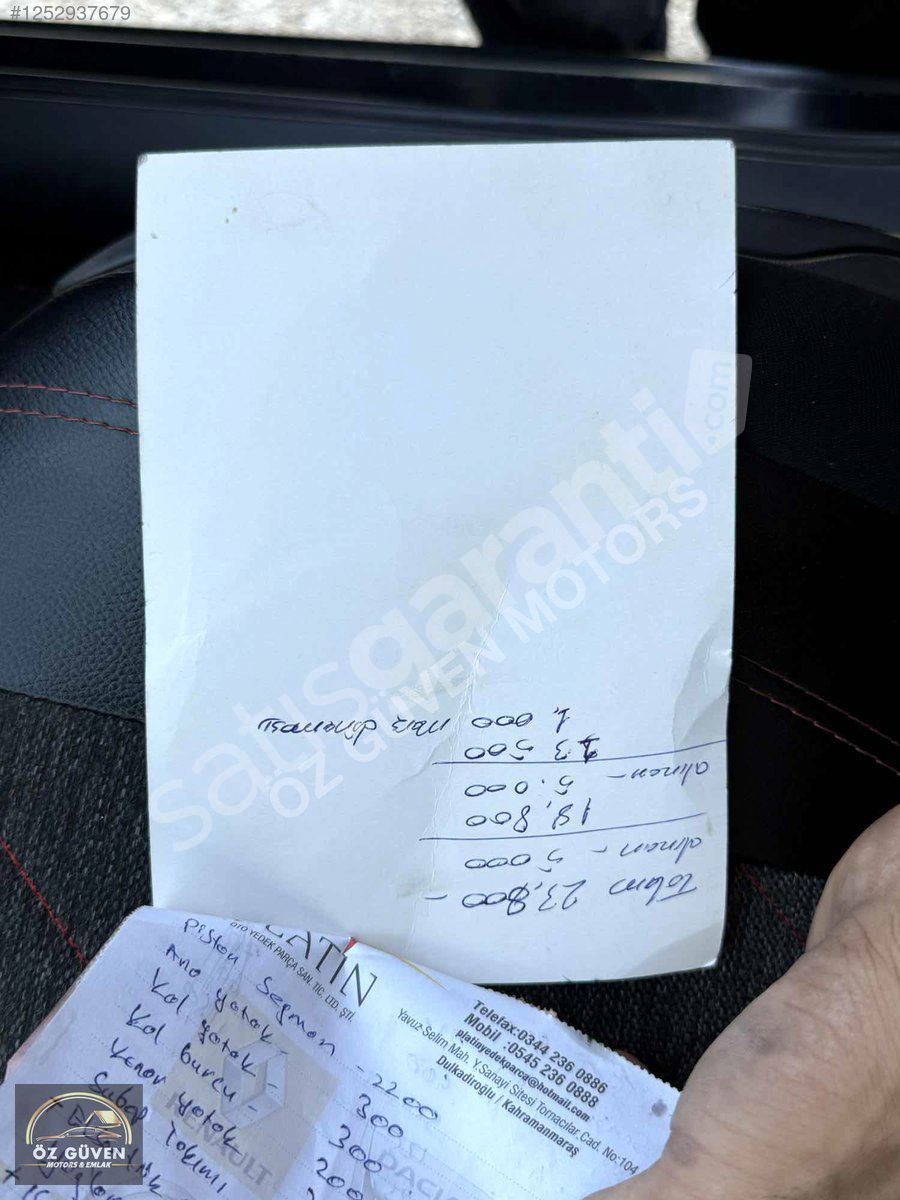 #1252937679
satışgaranti.com
ÖZ GÜVEN MOTORS
Tolam 23,800 -
5000
alınan -
18,800
5.000
alınan -
13 500
1.000
PLATİN
OTO YEDEK PARÇA SAN. TİC. LTD. ŞTİ.
Telefax:0344 236 0886
Mobil :0545 236 0888
platinyedekparca@hotmail.com
Yavuz-Selim Mah. Y.Sanayi Sitesi Tornacılar Cad. No:104
Dulkadiroğlu / Kahramanmaraş
Piston Segman - 2200
Ana yatak - 300
Kol yatak - 300
Kol burcu - 200
Yenon yatak
Subap Takımı
RENAULT
DACIA
ÖZ GÜVEN
MOTORS & EMLAK